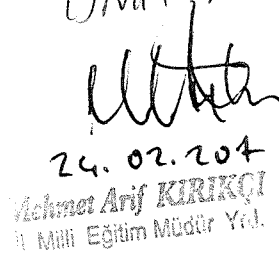 24.02.207
Mehmet Arif KIRIKÇI
İl Milli Eğitim Müdür Yrd.